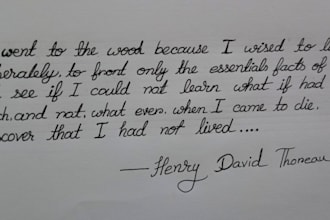 went to the wood because I wised to l
erately, to front only the essentials facts of
see if I could not learn what if had
ch, and nat, what even, when I came to die.
scover that I had not lived ....
—Henry David Thoreau